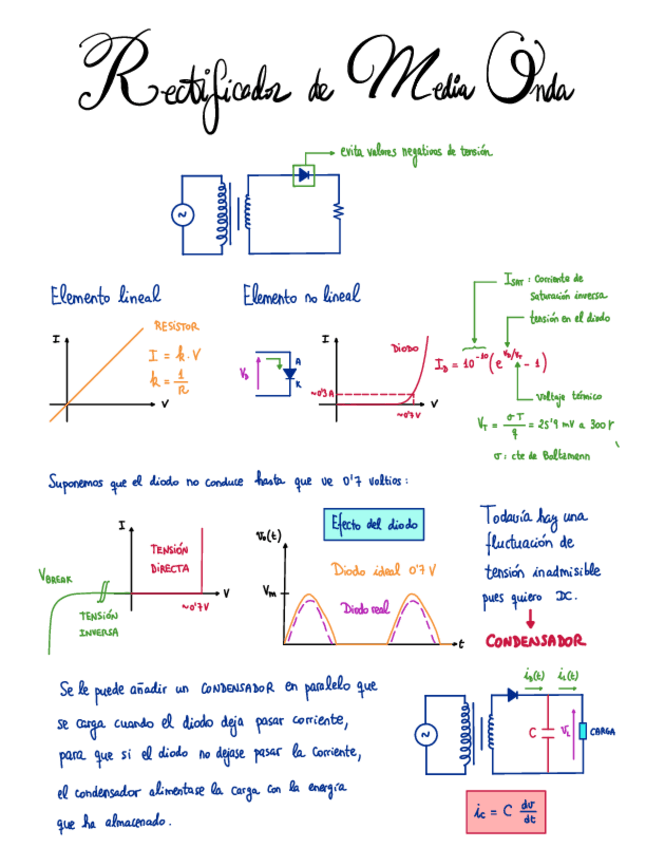 Rectificador de Media Onda
evita valores negativos de tensión
~
Elemento lineal
Elemento no lineal
I_SAT : Corriente de
saturación inversa
tensión en el diodo
I
RESISTOR
I = k·V
k = 1/R
V
V_D
A
K
I
DIODO
~0'3 A
~0'7 V
V
I_D = 10^-10 (e^(V_D/V_T) - 1)
Voltaje térmico
V_T = σT/q = 25'9 mV a 300
σ : cte de Boltzmann
Suponemos que el diodo no conduce hasta que ve 0'7 voltios :
I
TENSIÓN
DIRECTA
V
~0'7V
V_BREAK
TENSIÓN
INVERSA
V_o(t)
Efecto del diodo
V_m
Diodo ideal 0'7 V
Diodo real
t
Todavía hay una
fluctuación de
tensión inadmisible
pues quiero DC.
CONDENSADOR
Se le puede añadir un CONDENSADOR en paralelo que
se carga cuando el diodo deja pasar corriente,
para que si el diodo no dejase pasar la corriente,
el condensador alimentase la carga con la energía
que ha almacenado.
i_D(t)
i_L(t)
~
C
V_L
CARGA
i_C = C dv/dt